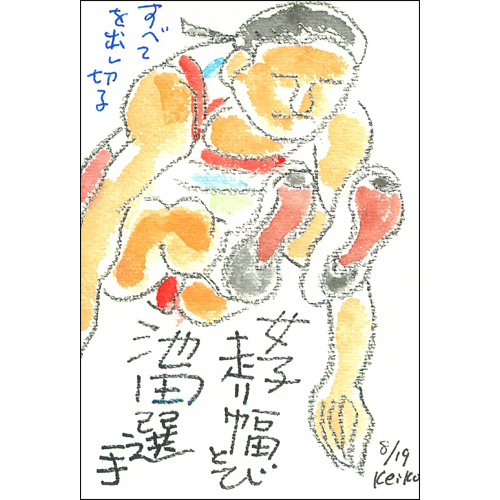 すべて
を出し切る
女子
走り幅とび
池田選手
8/19
Keiko